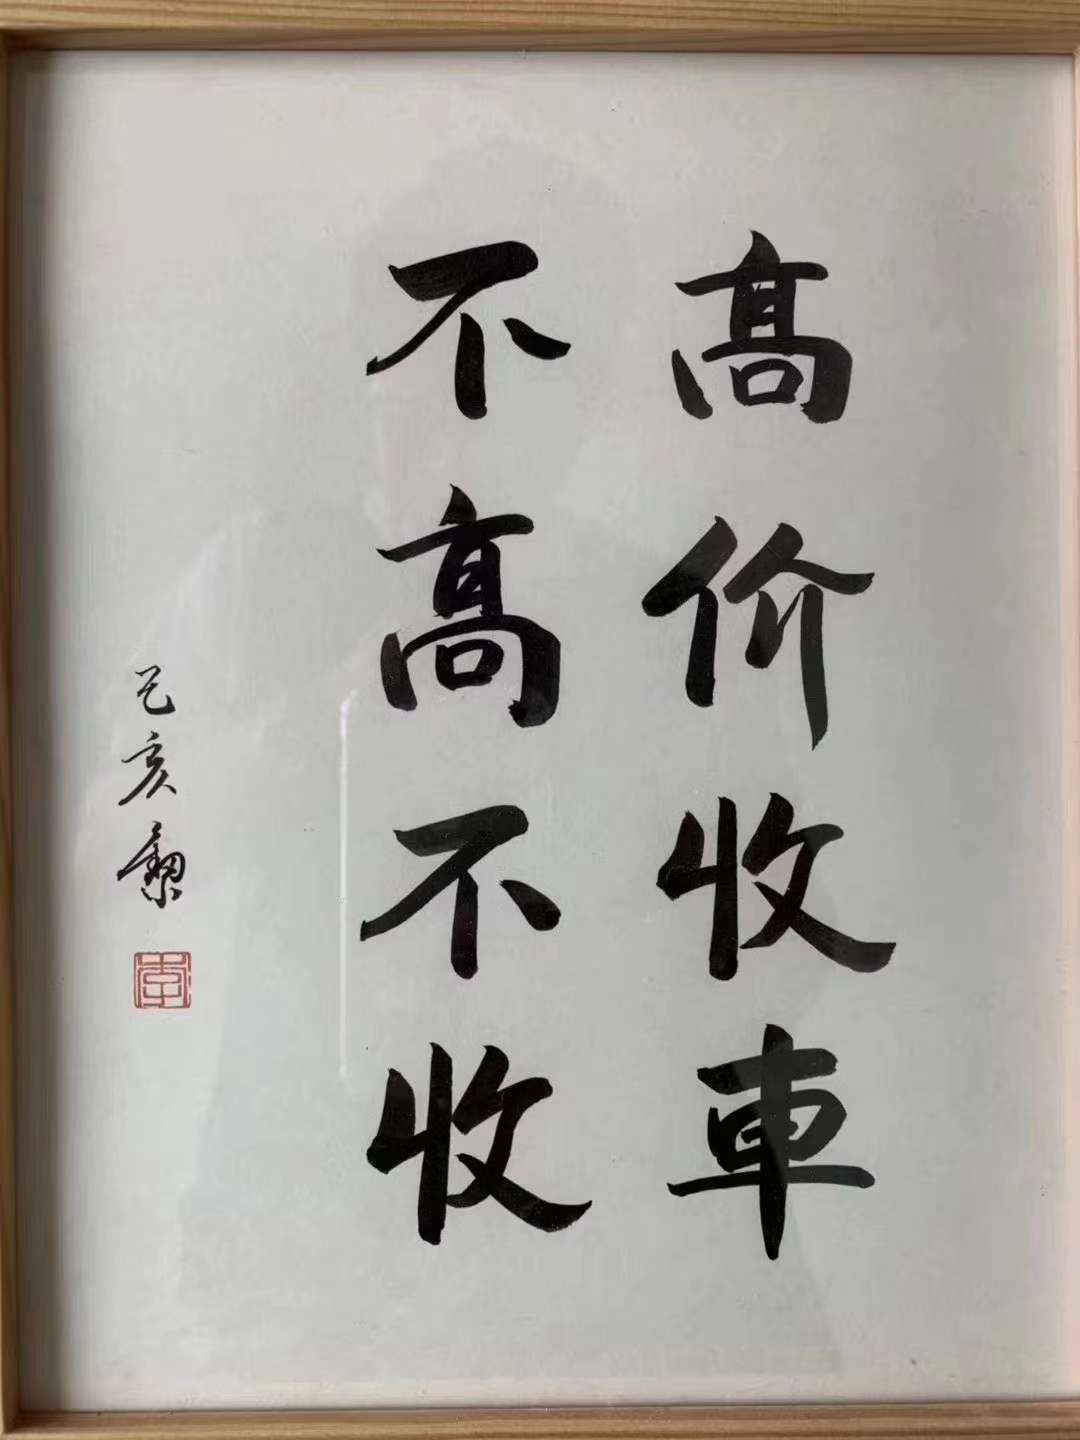 高价收車
不高不收
己亥